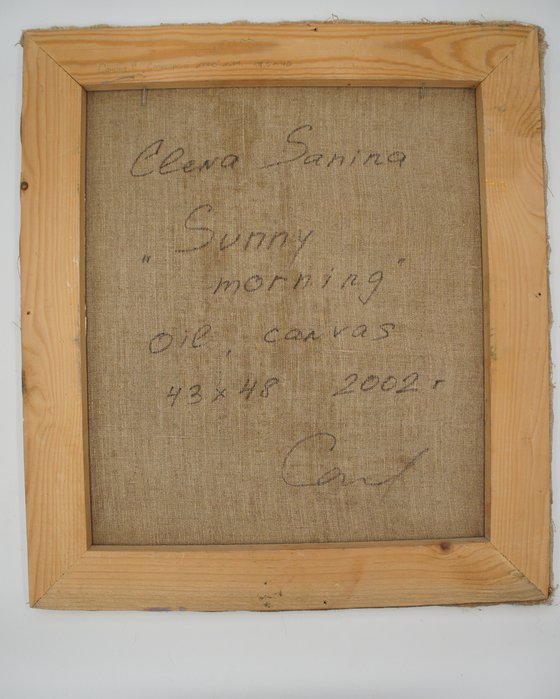 Elena Sanina
"Sunny
morning"
oil, canvas
43 x 48 2002 г